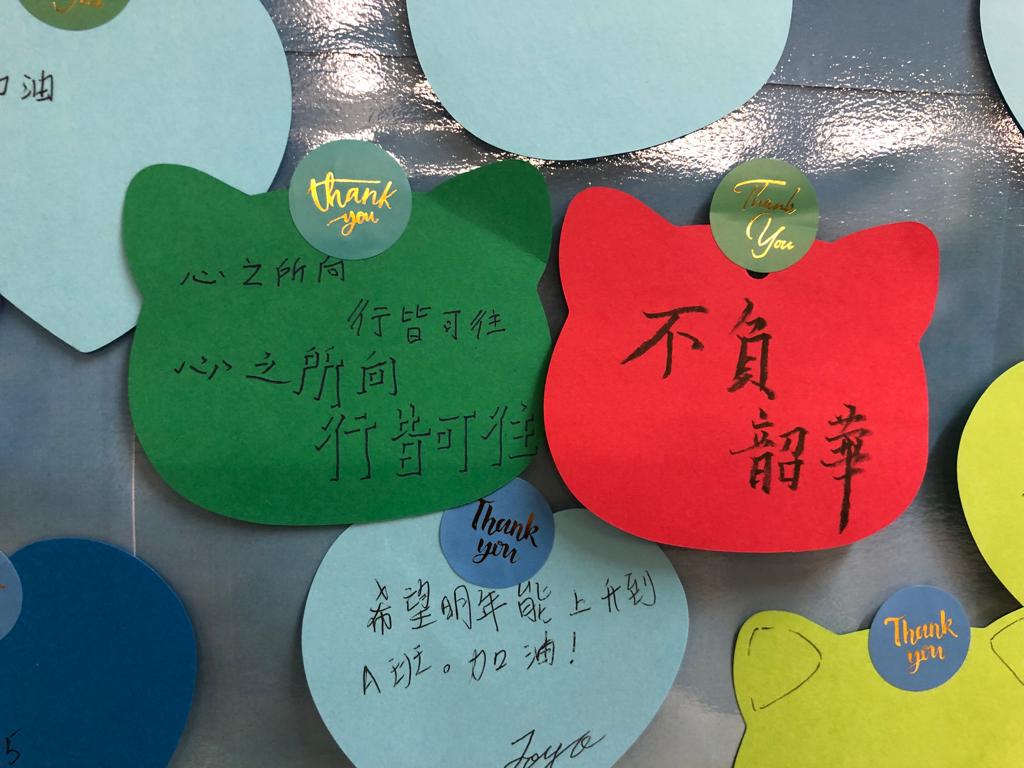 油
Thank
you
心之所向
行皆可往
心之所向
行皆可往
Thank
You
不負
韶華
Thank
you
希望明年能上升到
A班。加油!
Joyo
Thank
you
5